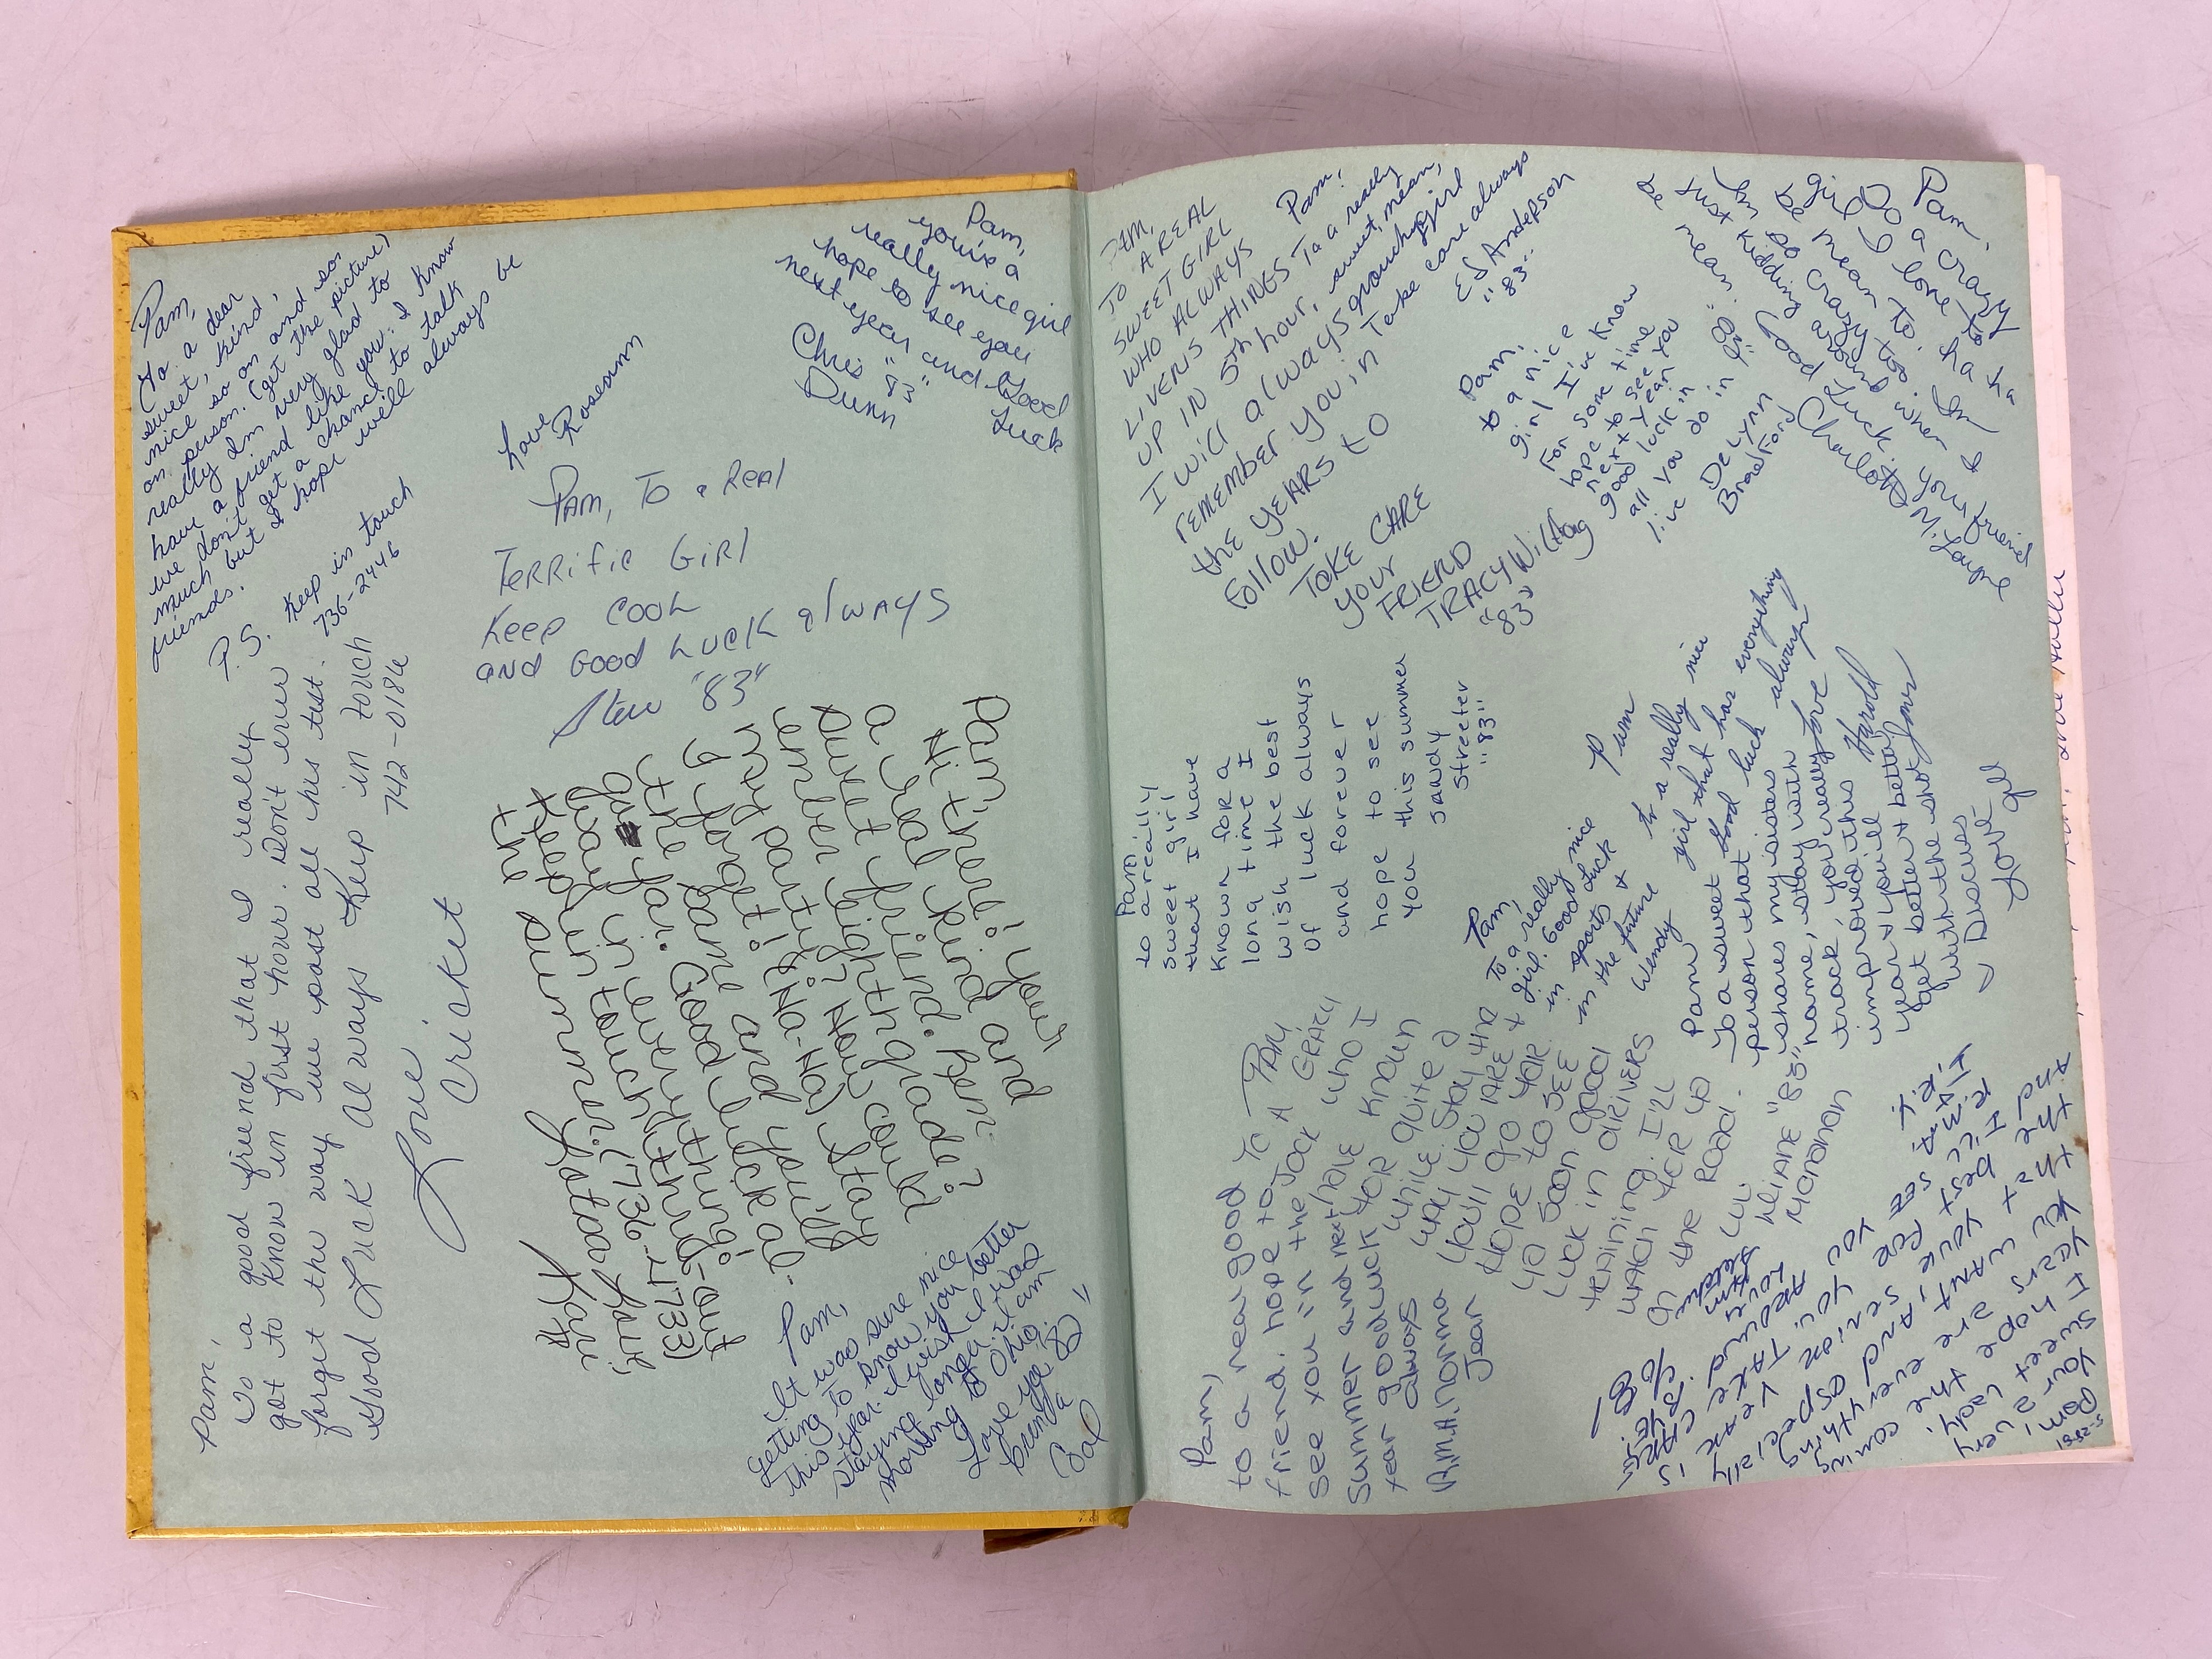 Pam,
To a dear
sweet, kind,
nice so on and so
on person. (get the picture)
really I'm very glad to
have a friend like you. I know
we don't get a chance to talk
much but I hope we'll always be
friends.
P.S. Keep in touch
736-2446
Love
Roseann
Pam,
you're a
really nice girl
hope to see you
next year and Good
Luck
Chris "83"
Dunn
Pam, To a Real
Terrific Girl
Keep Cool
and Good Luck always
Steve "83"
Pam,
To a good friend that I really
got to know in first hour. Don't ever
forget the way we past all his test.
Good Luck Always Keep in touch
742-0186
Love
Cricket
Pam,
Hi there! your
a real kind and
sweet friend. Rem-
ember eight grade?
mert party? Now could
I forget! (Ha-Ha) Stay
the same and you'll
go far. Good luck al-
ways in everything!
Keep in touch thru-out
the summer. (736-4733)
Lotsa Luv!
Kari
Pam,
It was sure nice
getting to know you better
this year. I wish I was
staying longer. I am
moving to Ohio.
Love ya
Brenda "82"
Cox
PAM,
TO A REAL
SWEET GIRL
WHO ALWAYS
LIVENS THINGS
UP IN 5th hour,
I will always
remember you in
the YEARS to
Follow.
TAKE CARE
your
FRIEND
TRACY
"83"
Pam,
To a really
sweet, mean,
grouchy girl
Take care always
Ed Anderson
"83"
Pam,
to a nice
girl I've know
For some time
hope to see you
next year
good luck in
all you do in
live
DeLynn
Bradford "83"
Pam,
To a crazy
girl I love to
be mean to. ha ha
I'm so crazy too. I'm
just kidding around when I
be mean. Good Luck. your friend
Charlotte M. Layne
Pam,
to a really
sweet girl
that I have
known for a
long time I
wish the best
of luck always
and forever
hope to see
you this summer
Sandy
Streeter
"83"
Pam
to a really nice
girl that has everything
Good luck always
Love
Harold
Jones
Pam,
To a really nice
girl. Good luck
in sports &
in the future
Wendy
Pam
To a sweet
person that
shares my sisters
name, stay with
track, you really
improved this
year & you'll
get better & better
with the shot
Discus
Love
Pam,
to a real good
friend. hope to
see you in the
Summer and next
year good luck
always
B.M.A. Norma
Jean
To PAM
A GREAT
Jock who I
have known
for quite a
while. Stay the
way you are &
you'll go far.
Hope to see
ya soon good
luck in drivers
training. I'll
watch for ya
on the road.
Luv
Diane "83"
Monahan
5-28-81
Pam,
Your a very
sweet lady.
I hope the coming
years are everything
you want, and especially
that your senior year is
the best for you. Take care
and I'll see you around.